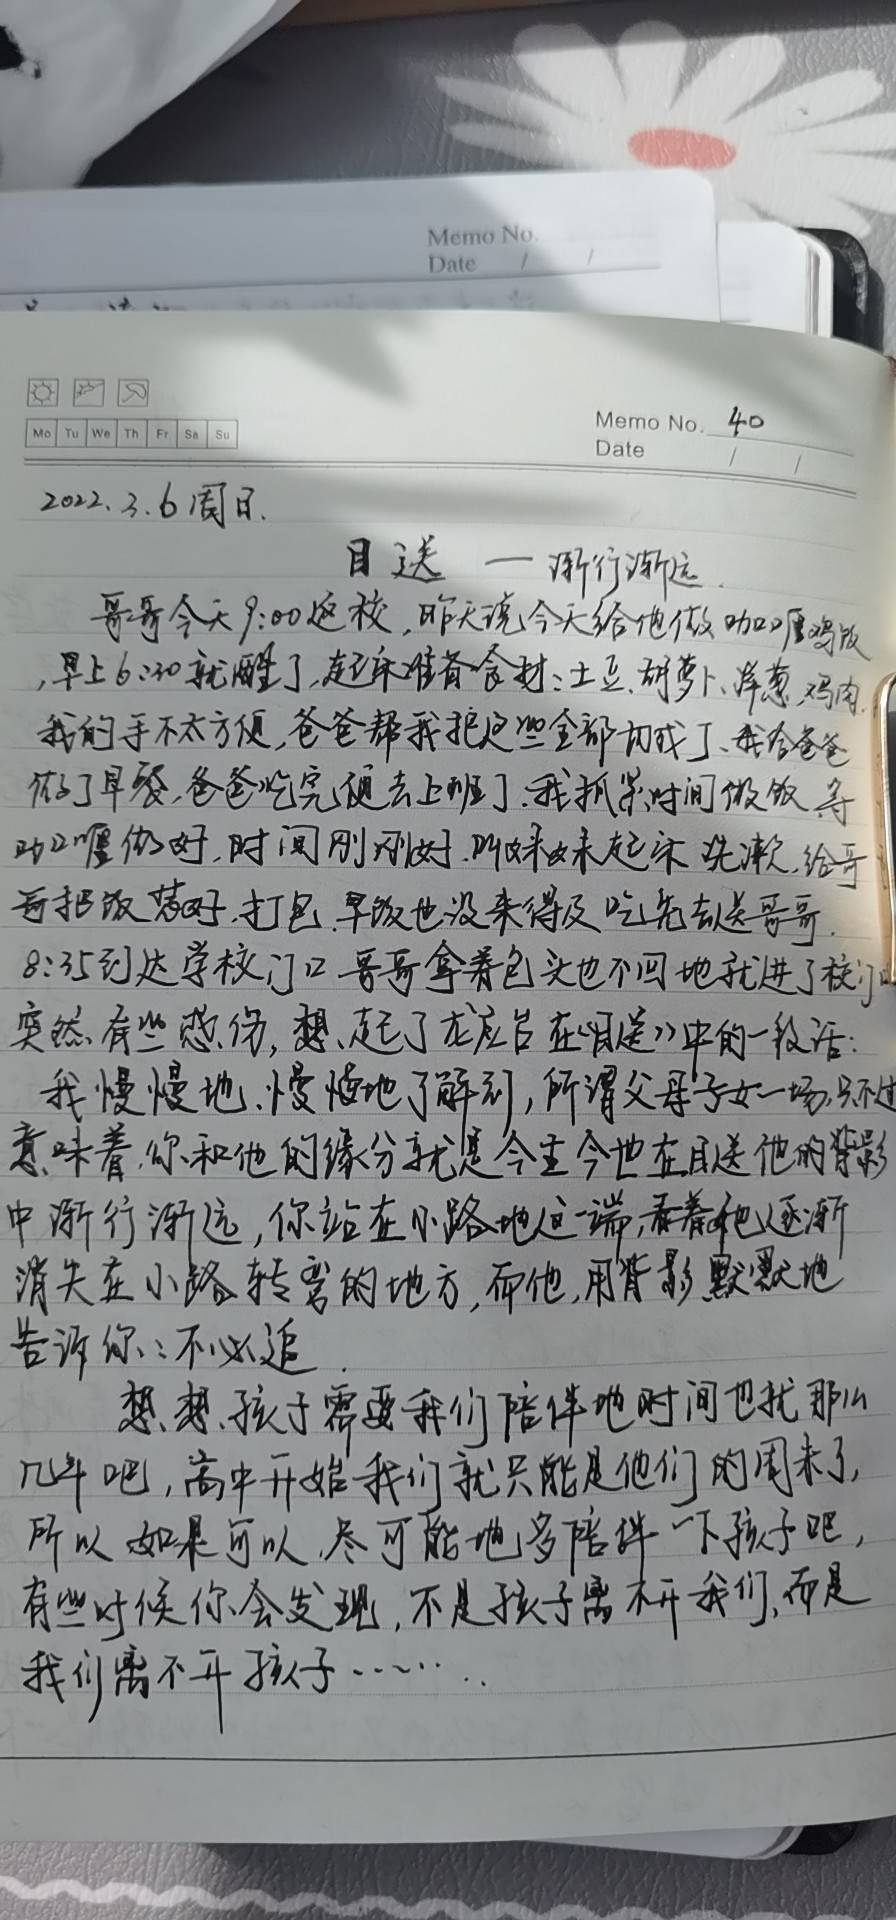 Memo No.
Date / /
Memo No. 40
Mo Tu We Th Fr Sa Su
Date / /
2022.3.6周日.
目送 — 渐行渐远.
哥哥今天9:00返校,昨天说今天给他做咖喱鸡饭
,早上6:30就醒了,起床准备食材:土豆、胡萝卜、洋葱、鸡肉.
我的手不太方便,爸爸帮我把这些全部切成丁、我给爸爸
做了早餐,爸爸吃完便去上班了.我抓紧时间做饭,等
咖喱做好,时间刚刚好.叫妹妹起床洗漱,给哥
哥把饭装好,打包.早饭也没来得及吃先去送哥哥.
8:35到达学校门口 哥哥拿着包头也不回地就进了校门口
突然有些感伤,想起了龙应台在《目送》中的一段话:
我慢慢地、慢慢地了解到,所谓父母子女一场,只不过
意味着,你和他的缘分就是今生今世在目送他的背影
中渐行渐远,你站在小路地这一端,看着他逐渐
消失在小路转弯的地方,而他,用背影默默地
告诉你:不必追.
想想,孩子需要我们陪伴地时间也就那么
几年吧,高中开始我们就只能是他们的周末了,
所以如果可以,尽可能地多陪伴一下孩子吧,
有些时候你会发现,不是孩子离不开我们,而是
我们离不开孩子……